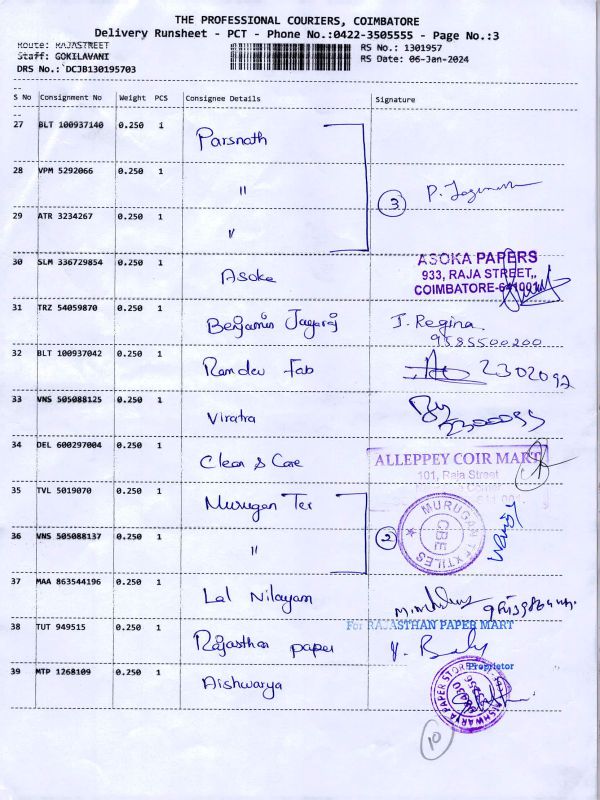 THE PROFESSIONAL COURIERS, COIMBATORE
Delivery Runsheet - PCT - Phone No.:0422-3505555 - Page No.:3
Route: RAJASTREET
RS No.: 1301957
Staff: GOKILAVANI
RS Date: 06-Jan-2024
DRS No.: DCJB130195703
S No Consignment No Weight PCS Consignee Details Signature
27 BLT 100937140 0.250 1 Parsnath
28 VPM 5292066 0.250 1 "
3 P.
29 ATR 3234267 0.250 1 "
30 SLM 336729854 0.250 1 Asoka
ASOKA PAPERS
933, RAJA STREET,,
COIMBATORE-641001
31 TRZ 54059870 0.250 1 Benjamin Jayaraj J. Regina
9585500200
32 BLT 100937042 0.250 1 Ramdev Fab 2302092
33 VNS 505088125 0.250 1 Viratra
34 DEL 600297004 0.250 1 Clean & Care
ALLEPPEY COIR MART
101, Raja Street
35 TVL 5019070 0.250 1 Murugan Tex
MURUGAN TEXTILES
CBE
36 VNS 505088137 0.250 1 " 2
37 MAA 863544196 0.250 1 Lal Nilayam
For RAJASTHAN PAPER MART
38 TUT 949515 0.250 1 Rajasthan paper
Proprietor
39 MTP 1268109 0.250 1 Aishwarya
AISHWARYA PAPER STORE
10